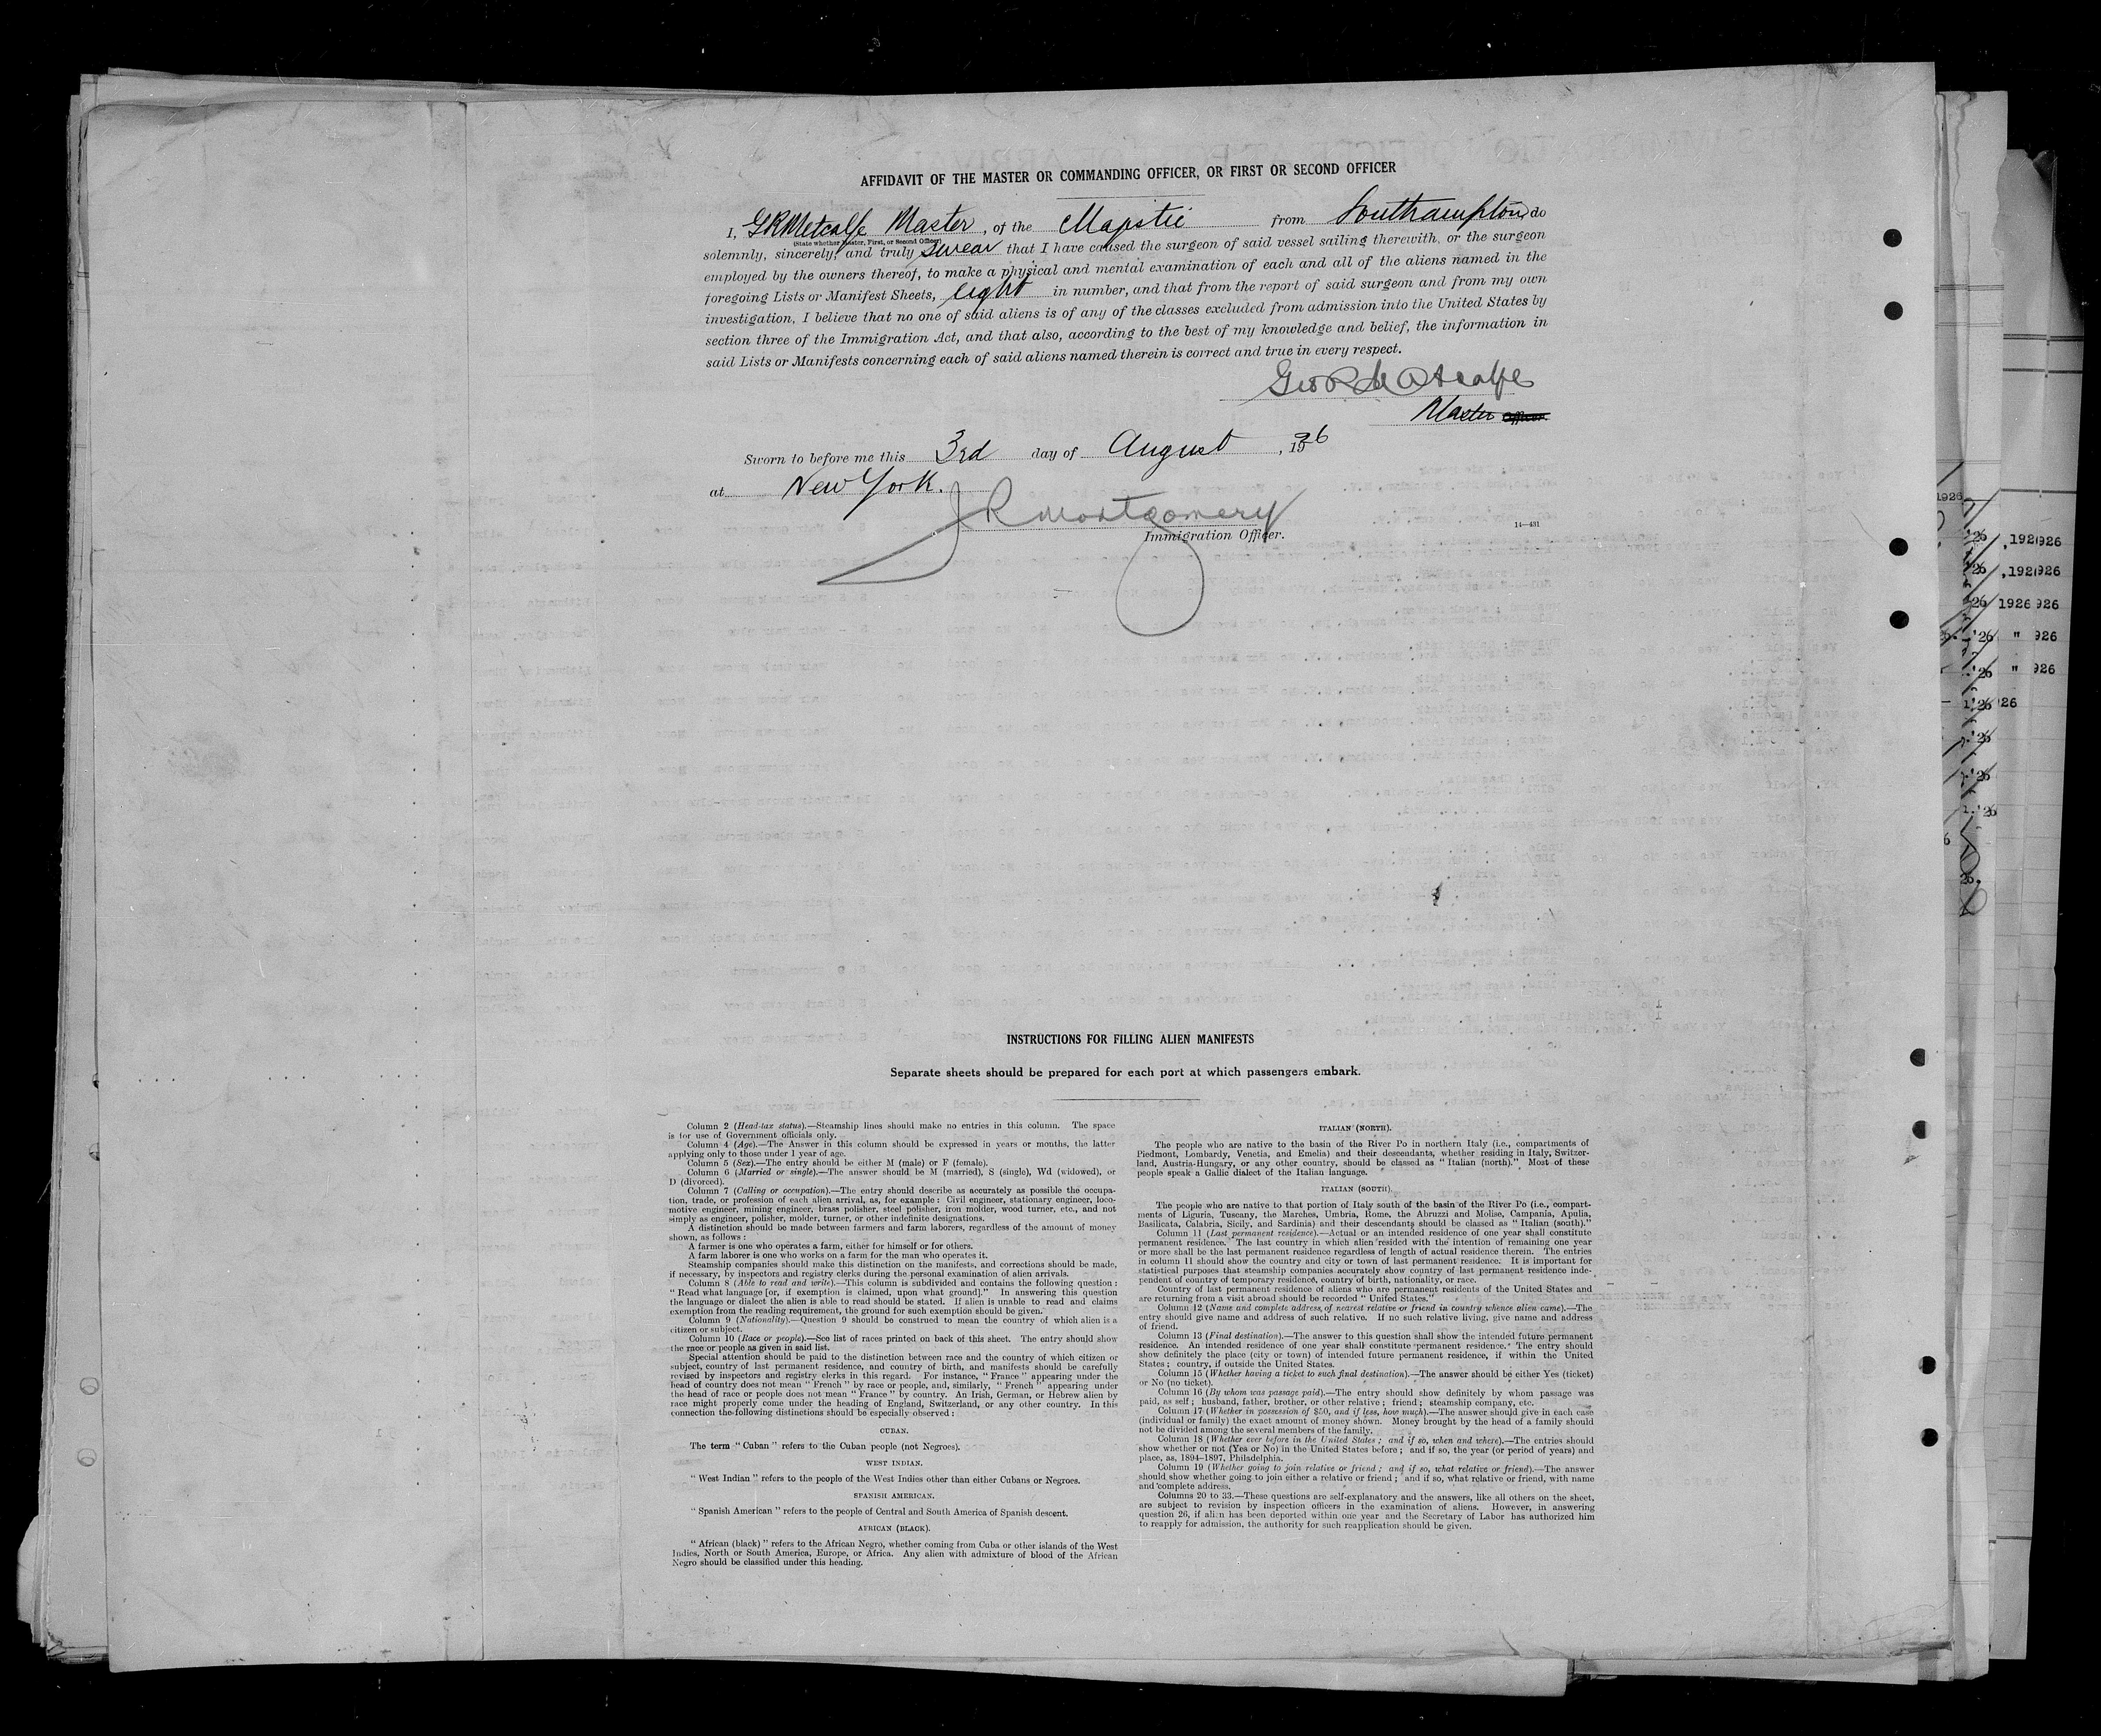 AFFIDAVIT OF THE MASTER OR COMMANDING OFFICER, OR FIRST OR SECOND OFFICER
I, GRMetcalfe Master, of the Majestic from Southampton, do
(State whether Master, First, or Second Officer)
solemnly, sincerely, and truly swear that I have caused the surgeon of said vessel sailing therewith, or the surgeon
employed by the owners thereof, to make a physical and mental examination of each and all of the aliens named in the
foregoing Lists or Manifest Sheets, eight in number, and that from the report of said surgeon and from my own
investigation, I believe that no one of said aliens is of any of the classes excluded from admission into the United States by
section three of the Immigration Act, and that also, according to the best of my knowledge and belief, the information in
said Lists or Manifests concerning each of said aliens named therein is correct and true in every respect.
Geo R Metcalfe
Master Officer.
Sworn to before me this 3rd day of August, 1926
at New York.
J R Montgomery
Immigration Officer.
14—431
INSTRUCTIONS FOR FILLING ALIEN MANIFESTS
Separate sheets should be prepared for each port at which passengers embark.
Column 2 (Head-tax status).—Steamship lines should make no entries in this column. The space
is for use of Government officials only.
Column 4 (Age).—The Answer in this column should be expressed in years or months, the latter
applying only to those under 1 year of age.
Column 5 (Sex).—The entry should be either M (male) or F (female).
Column 6 (Married or single).—The answer should be M (married), S (single), Wd (widowed), or
D (divorced).
Column 7 (Calling or occupation).—The entry should describe as accurately as possible the occupa-
tion, trade, or profession of each alien arrival, as, for example: Civil engineer, stationary engineer, loco-
motive engineer, mining engineer, brass polisher, steel polisher, iron molder, wood turner, etc., and not
simply as engineer, polisher, molder, turner, or other indefinite designations.
A distinction should be made between farmers and farm laborers, regardless of the amount of money
shown, as follows:
A farmer is one who operates a farm, either for himself or for others.
A farm laborer is one who works on a farm for the man who operates it.
Steamship companies should make this distinction on the manifests, and corrections should be made,
if necessary, by inspectors and registry clerks during the personal examination of alien arrivals.
Column 8 (Able to read and write).—This column is subdivided and contains the following question:
" Read what language [or, if exemption is claimed, upon what ground]." In answering this question
the language or dialect the alien is able to read should be stated. If alien is unable to read and claims
exemption from the reading requirement, the ground for such exemption should be given.
Column 9 (Nationality).—Question 9 should be construed to mean the country of which alien is a
citizen or subject.
Column 10 (Race or people).—See list of races printed on back of this sheet. The entry should show
the race or people as given in said list.
Special attention should be paid to the distinction between race and the country of which citizen or
subject, country of last permanent residence, and country of birth, and manifests should be carefully
revised by inspectors and registry clerks in this regard. For instance, " France " appearing under the
head of country does not mean " French " by race or people, and, similarly, " French " appearing under
the head of race or people does not mean " France " by country. An Irish, German, or Hebrew alien by
race might properly come under the heading of England, Switzerland, or any other country. In this
connection the following distinctions should be especially observed:
CUBAN.
The term " Cuban " refers to the Cuban people (not Negroes).
WEST INDIAN.
" West Indian " refers to the people of the West Indies other than either Cubans or Negroes.
SPANISH AMERICAN.
" Spanish American " refers to the people of Central and South America of Spanish descent.
AFRICAN (BLACK).
" African (black) " refers to the African Negro, whether coming from Cuba or other islands of the West
Indies, North or South America, Europe, or Africa. Any alien with admixture of blood of the African
Negro should be classified under this heading.
ITALIAN (NORTH).
The people who are native to the basin of the River Po in northern Italy (i.e., compartments of
Piedmont, Lombardy, Venetia, and Emelia) and their descendants, whether residing in Italy, Switzer-
land, Austria-Hungary, or any other country, should be classed as " Italian (north)." Most of these
people speak a Gallic dialect of the Italian language.
ITALIAN (SOUTH).
The people who are native to that portion of Italy south of the basin of the River Po (i.e., compart-
ments of Liguria, Tuscany, the Marches, Umbria, Rome, the Abruzzi and Molise, Campania, Apulia,
Basilicata, Calabria, Sicily, and Sardinia) and their descendants should be classed as " Italian (south)."
Column 11 (Last permanent residence).—Actual or an intended residence of one year shall constitute
permanent residence. The last country in which alien resided with the intention of remaining one year
or more shall be the last permanent residence regardless of length of actual residence therein. The entries
in column 11 should show the country and city or town of last permanent residence. It is important for
statistical purposes that steamship companies accurately show country of last permanent residence inde-
pendent of country of temporary residence, country of birth, nationality, or race.
Country of last permanent residence of aliens who are permanent residents of the United States and
are returning from a visit abroad should be recorded " United States."
Column 12 (Name and complete address of nearest relative or friend in country whence alien came).—The
entry should give name and address of such relative. If no such relative living, give name and address
of friend.
Column 13 (Final destination).—The answer to this question shall show the intended future permanent
residence. An intended residence of one year shall constitute permanent residence. The entry should
show definitely the place (city or town) of intended future permanent residence, if within the United
States; country, if outside the United States.
Column 15 (Whether having a ticket to such final destination).—The answer should be either Yes (ticket)
or No (no ticket).
Column 16 (By whom was passage paid).—The entry should show definitely by whom passage was
paid, as self; husband, father, brother, or other relative; friend; steamship company, etc.
Column 17 (Whether in possession of $50, and if less, how much).—The answer should give in each case
(individual or family) the exact amount of money shown. Money brought by the head of a family should
not be divided among the several members of the family.
Column 18 (Whether ever before in the United States; and if so, when and where).—The entries should
show whether or not (Yes or No) in the United States before; and if so, the year (or period of years) and
place, as, 1894–1897, Philadelphia.
Column 19 (Whether going to join relative or friend; and if so, what relative or friend).—The answer
should show whether going to join either a relative or friend; and if so, what relative or friend, with name
and complete address.
Columns 20 to 33.—These questions are self-explanatory and the answers, like all others on the sheet,
are subject to revision by inspection officers in the examination of aliens. However, in answering
question 26, if alien has been deported within one year and the Secretary of Labor has authorized him
to reapply for admission, the authority for such reapplication should be given.